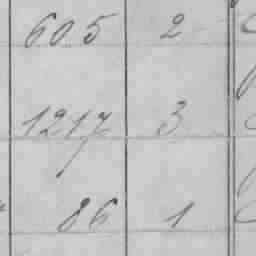 605 2
1217 3
86 1